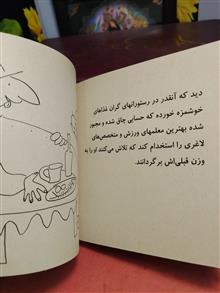 دید که آنقدر در رستورانهای گران غذاهای
خوشمزه خورده که حسابی چاق شده و مجبور
شده بهترین معلمهای ورزش و متخصص‌های
لاغری را استخدام کند که تلاش می‌کنند او را به
وزن قبلی‌اش برگردانند.